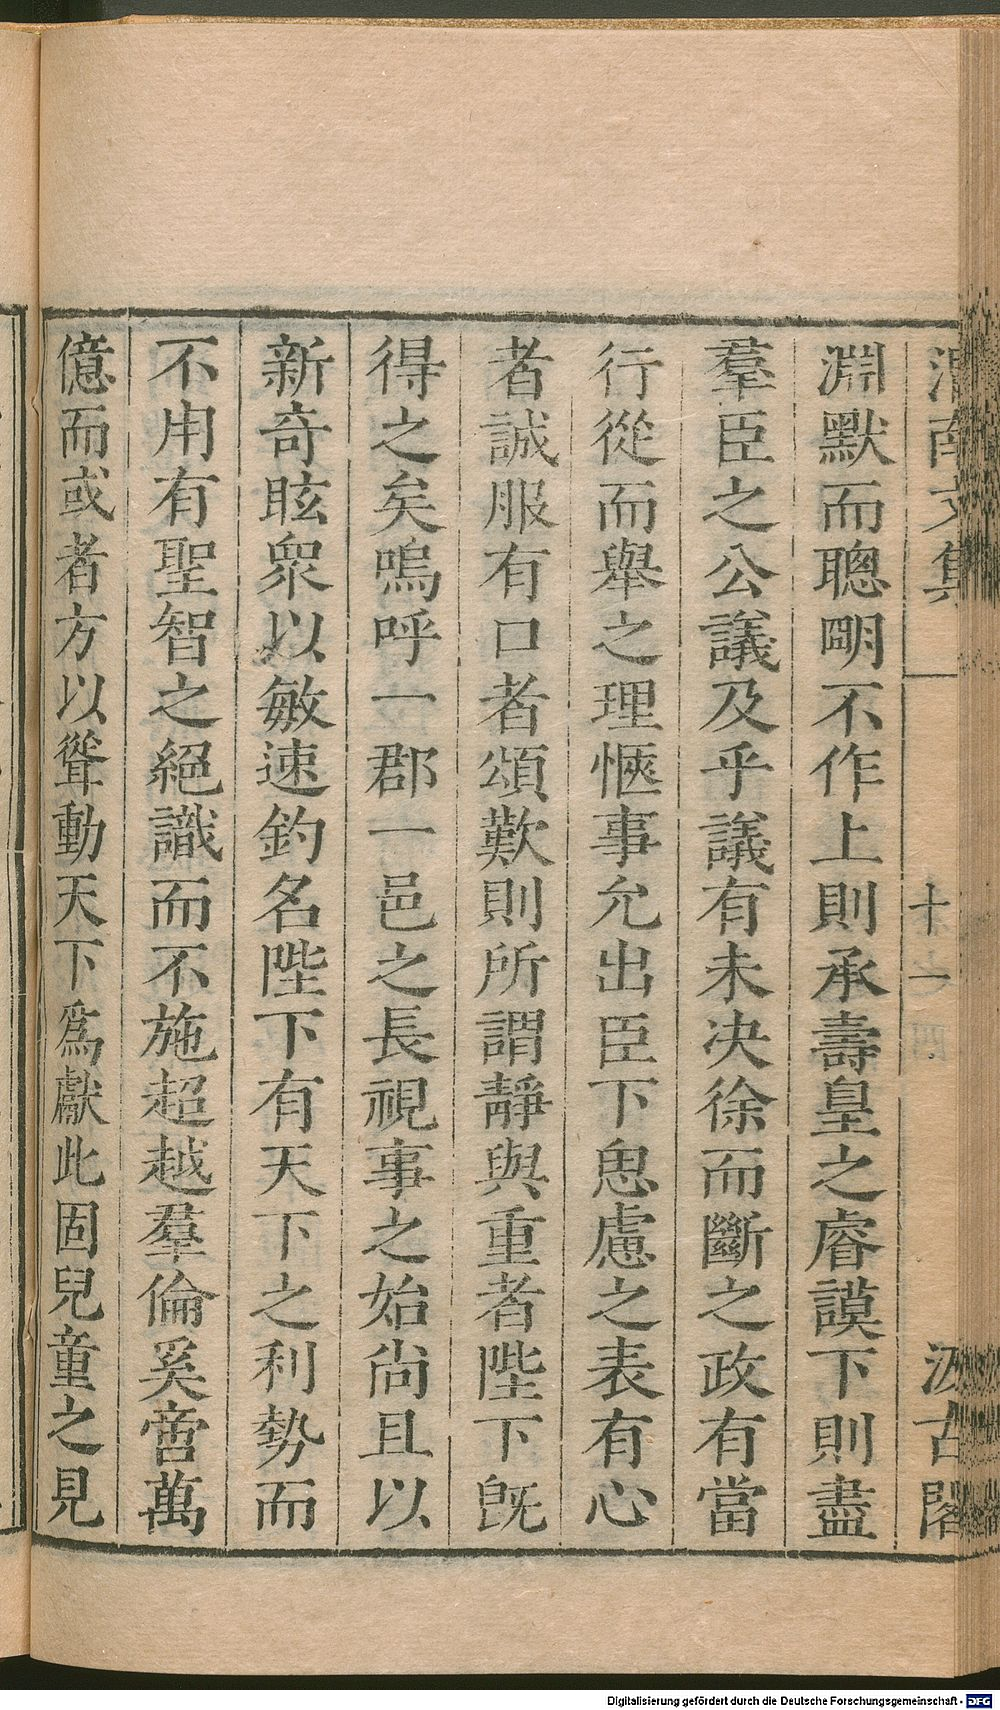 渭南文集
十一
汲古閣
淵默而聰明不作上則承壽皇之睿謨下則盡
羣臣之公議及乎議有未決徐而斷之政有當
行從而舉之理愜事允出臣下思慮之表有心
者誠服有口者頌歎則所謂靜與重者陛下旣
得之矣嗚呼一郡一邑之長視事之始尚且以
新奇眩衆以敏速釣名陛下有天下之利勢而
不用有聖智之絕識而不施超越羣倫奚啻萬
億而或者方以聳動天下爲獻此固兒童之見
Digitalisierung gefördert durch die Deutsche Forschungsgemeinschaft - DFG